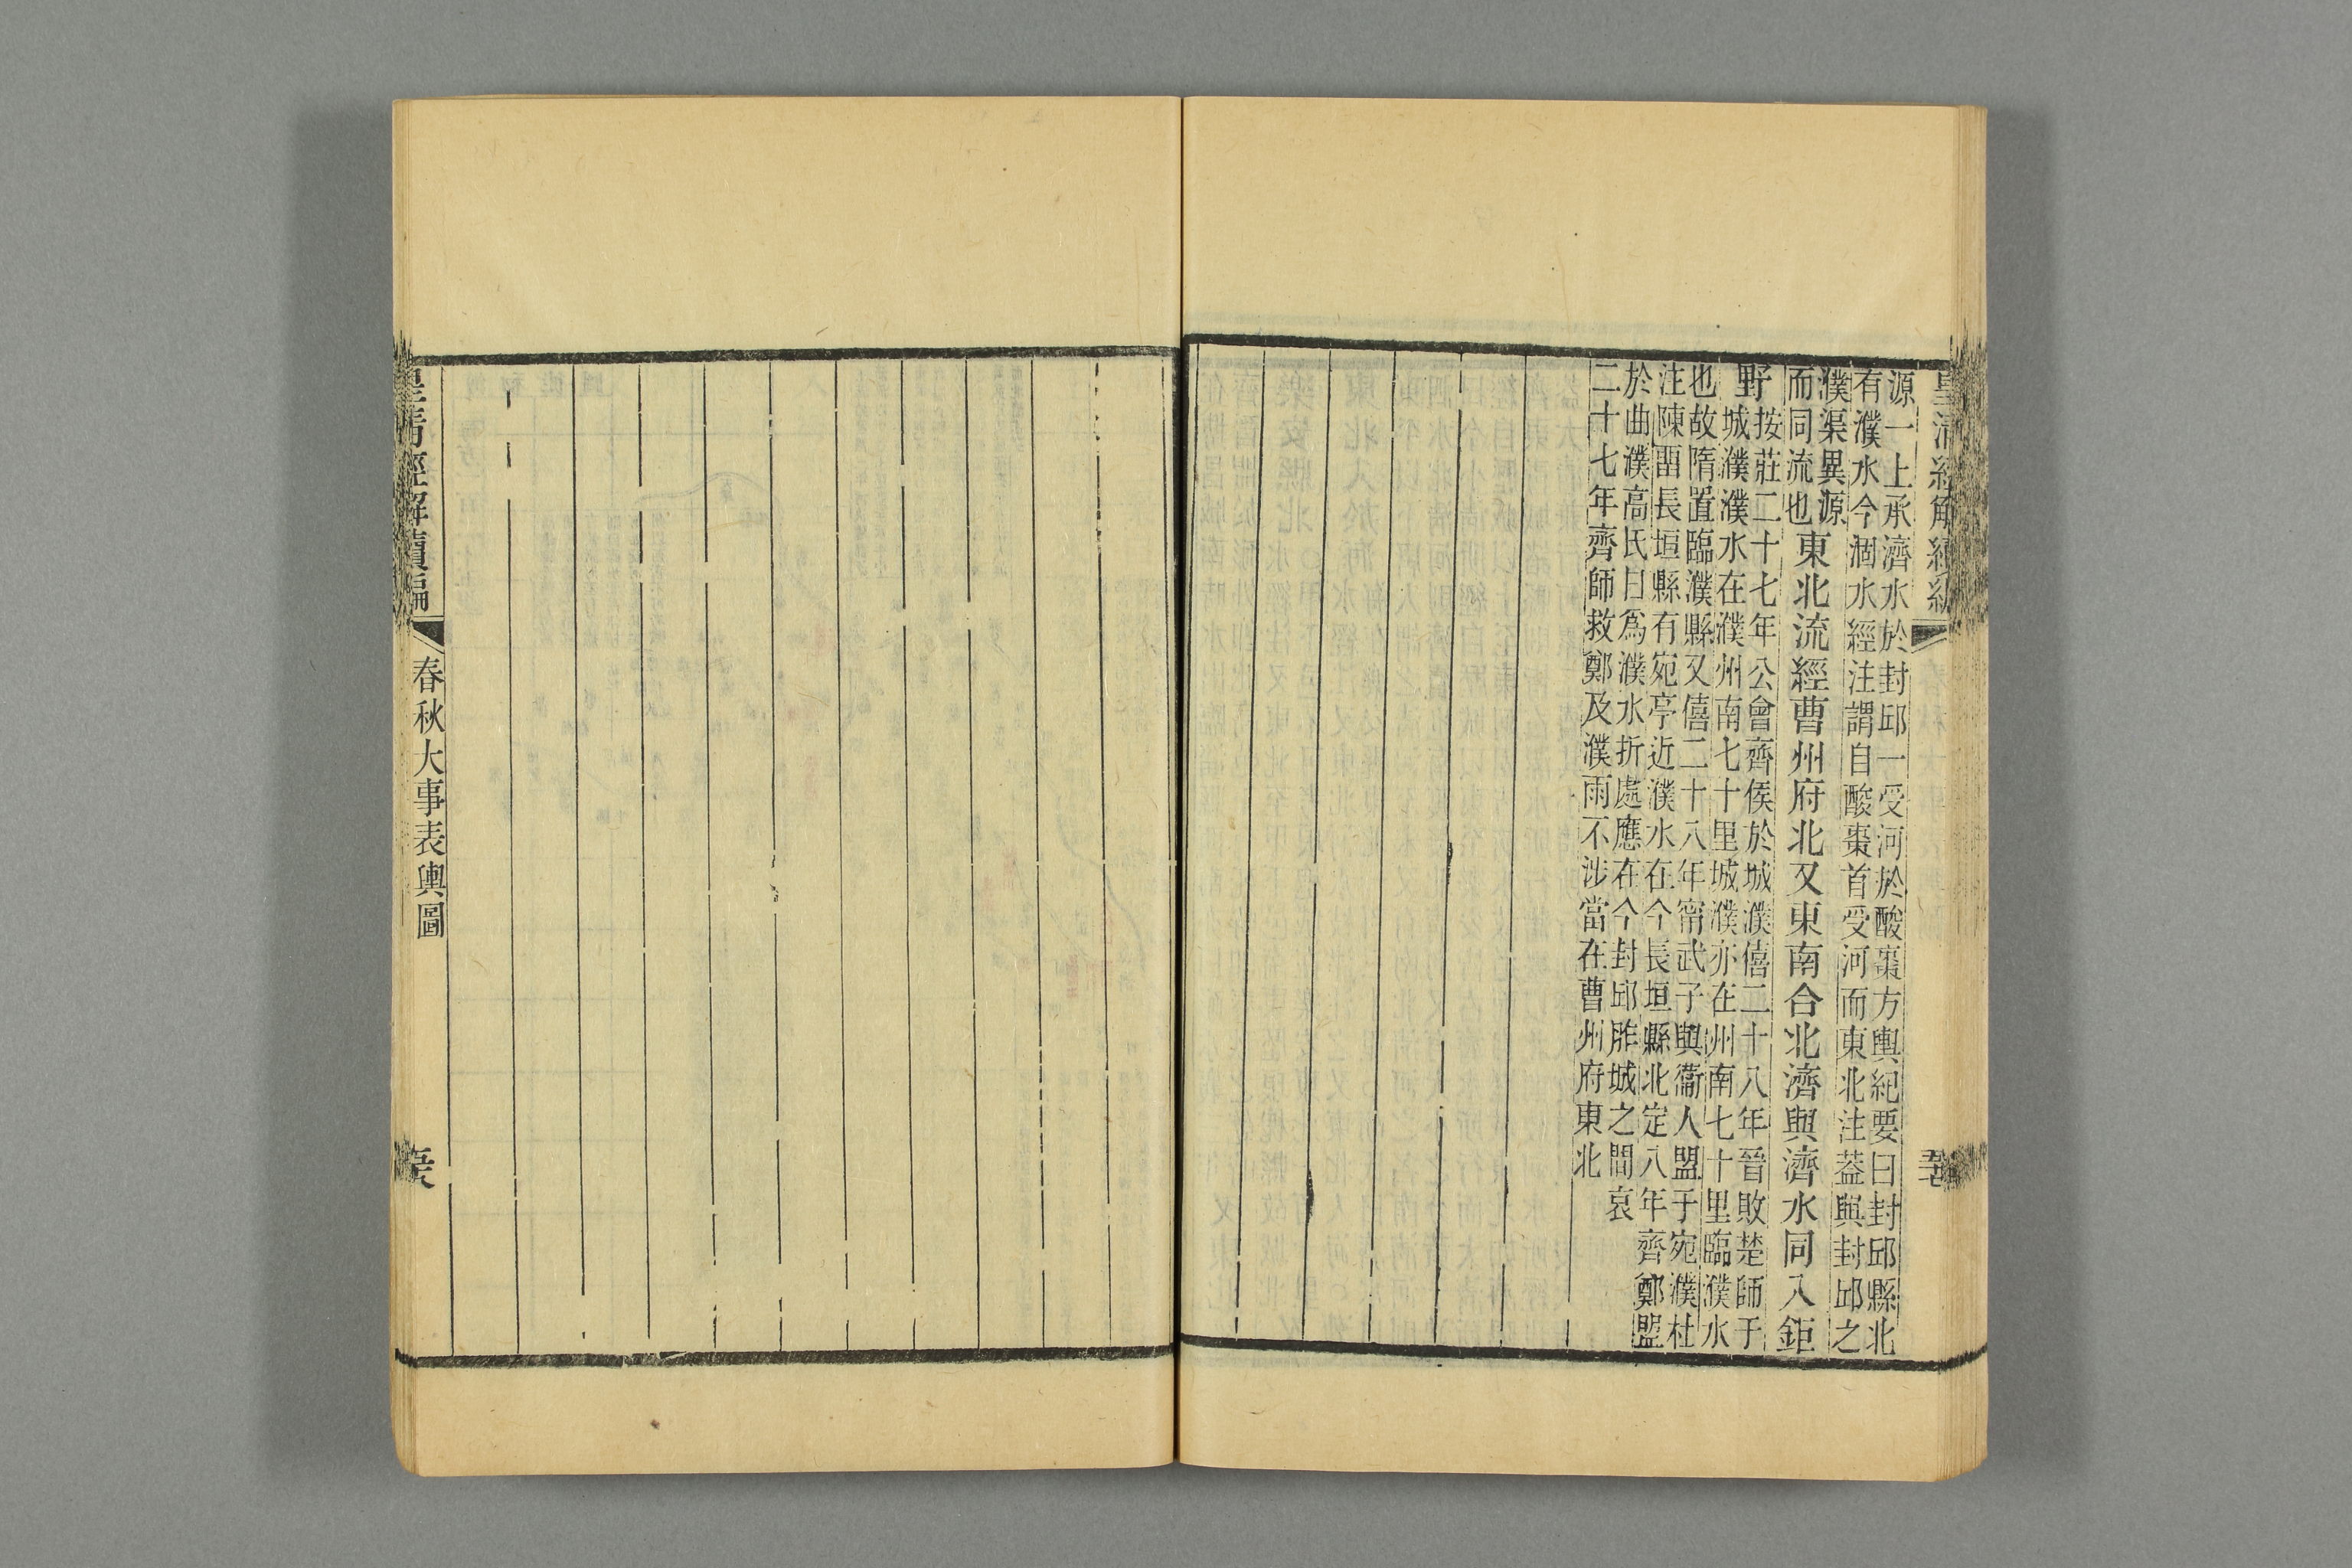 源一上承濟水於封邱一受河於酸棗方輿紀要曰封邱縣北
有濮水今涸水經注謂自酸棗首受河而東北注葢與封邱之
濮渠異源
而同流也
東北流經曹州府北又東南合北濟與濟水同入鉅
野
按莊二十七年公會齊侯於城濮僖二十八年晉敗楚師于
城濮濮水在濮州南七十里城濮亦在州南七十里臨濮水
也故隋置臨濮縣又僖二十八年甯武子與衞人盟于宛濮杜
注陳畱長垣縣有宛亭近濮水在今長垣縣北定八年齊鄭盟
於曲濮高氏曰爲濮水折處應在今封邱胙城之間哀
二十七年齊師救鄭及濮雨不涉當在曹州府東北
皇清經解續編
春秋大事表輿圖